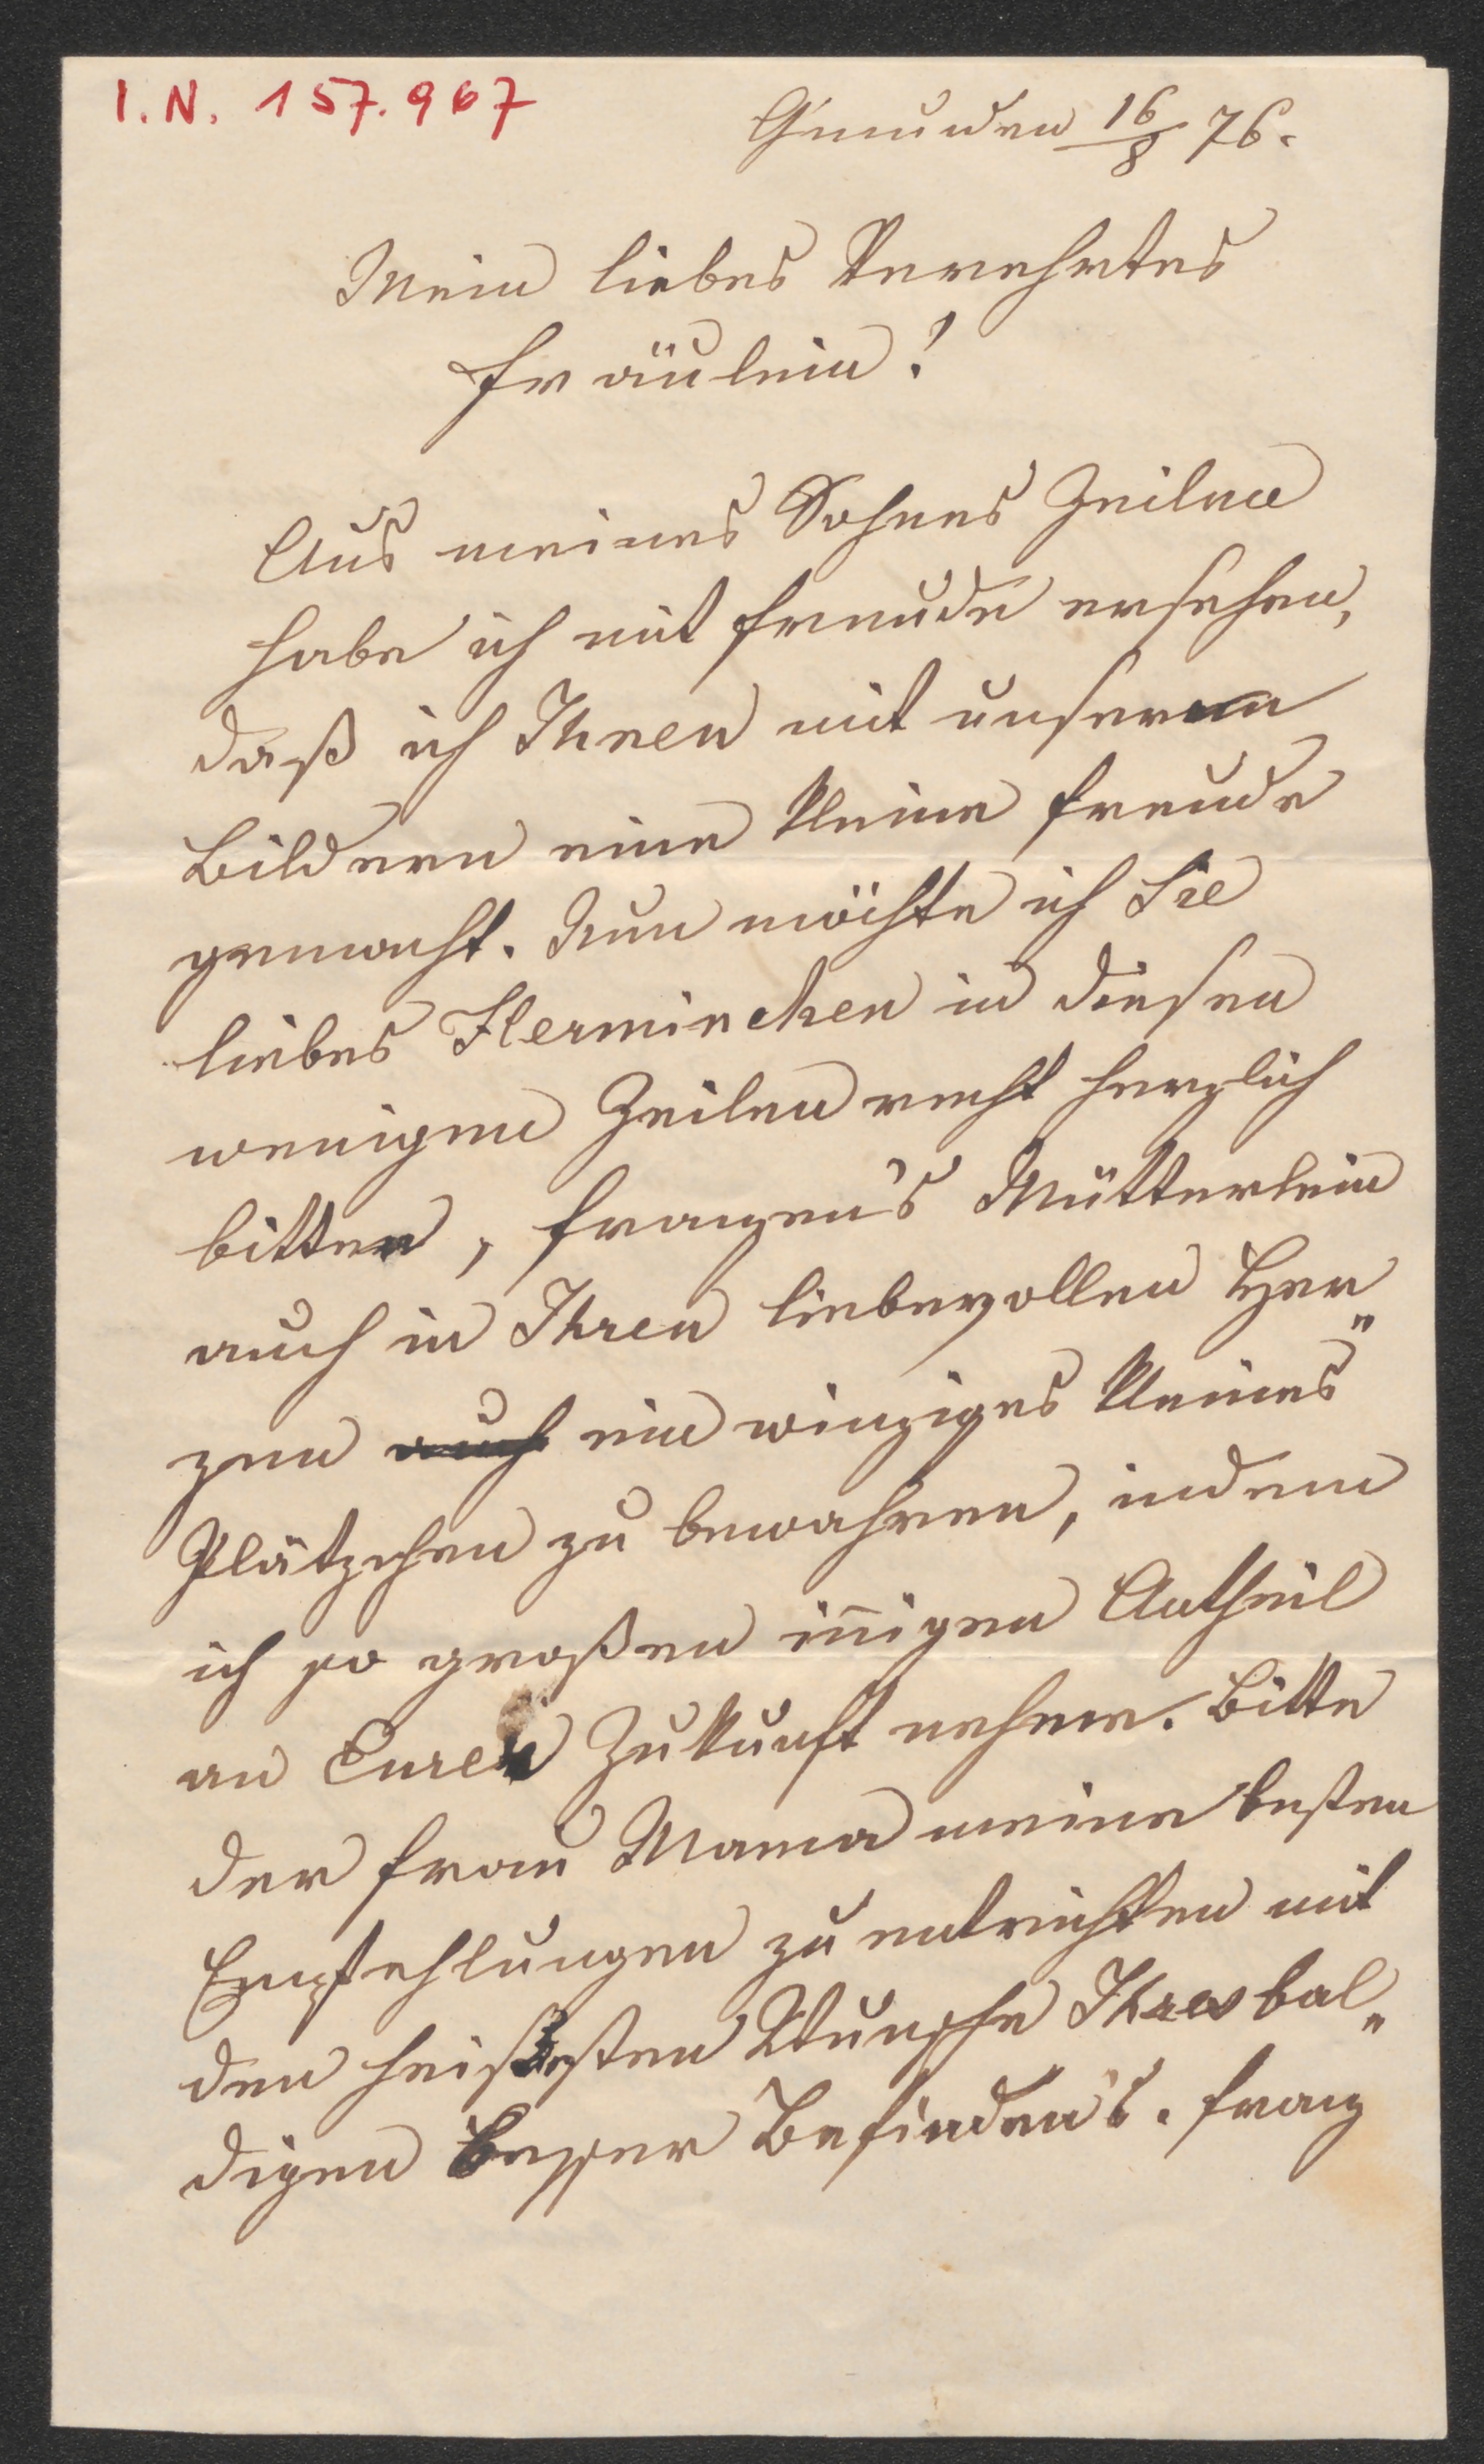 I.N. 157.967
Gmunden 16/8 76.
Mein liebes Verehrtes
Fräulein!
Aus meines Sohnes Zeilen
habe ich mit Freude ersehen,
daß ich Ihnen mit unseren
Bildern eine kleine Freude
gemacht. Nun möchte ich Sie
liebes Herminchen in diesen
wenigen Zeilen recht herzlich
bitten, Franzen's Mütterlein
auch in Ihren liebevollen Her„
zen auch ein winziges kleines
Plätzchen zu bewahren, indem
ich so großen innigen Antheil
an Eurer Zukunft nehme. Bitte
der Frau Mama meine besten
Empfehlungen zu entrichten mit
den heißesten Wunsche Ihres bal„
digen besser Befinden's. Franz